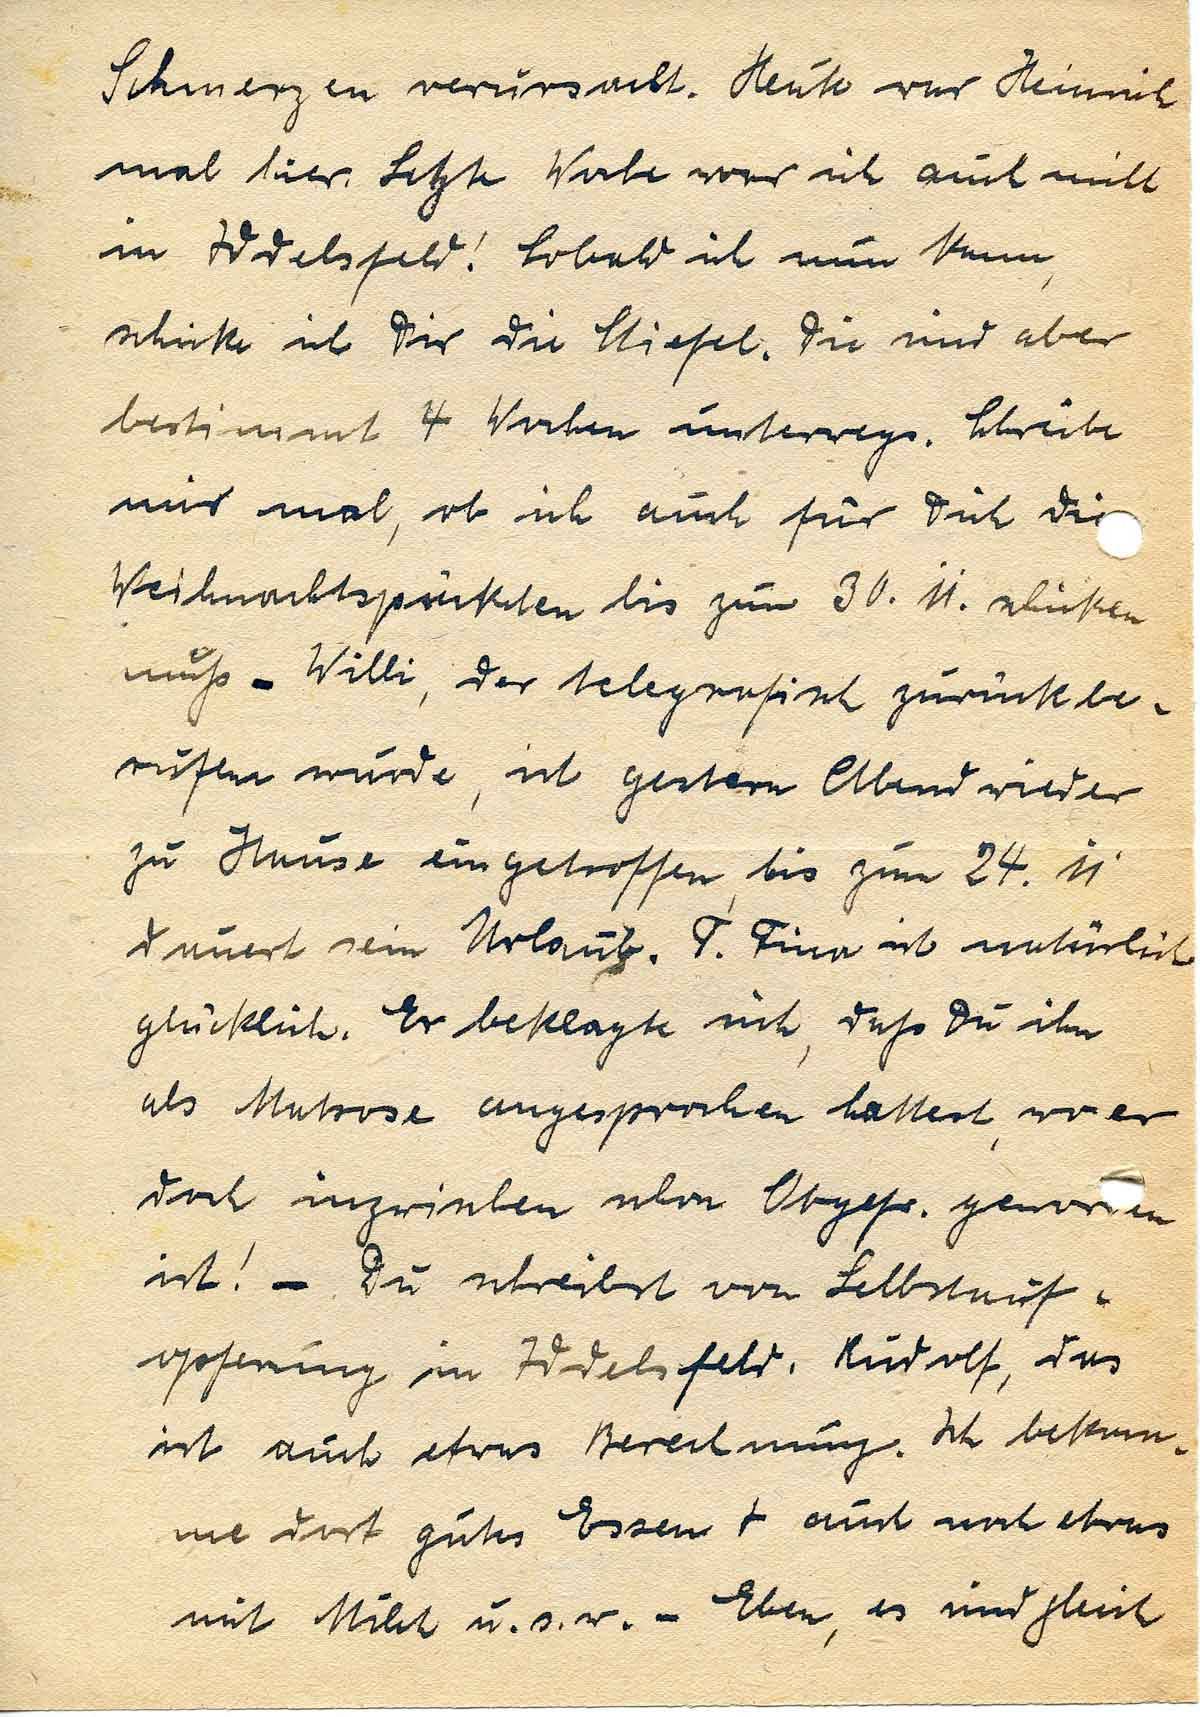 Schmerzen verursacht. Heute war Heinrich
mal hier. Letzte Woche war ich auch nicht
in Iddelsfeld! Sobald ich nun kann,
schicke ich Dir die Stiefel. Die sind aber
bestimmt 4 Wochen unterwegs. Schreibe
mir mal, ob ich auch für Dich die
Weihnachtspäckchen bis zum 30. 11. schicken
muß - Willi, der telegrafisch zurückbe-
rufen wurde, ist gestern Abend wieder
zu Hause eingetroffen, bis zum 24. 11
dauert sein Urlaub. T. Fina ist natürlich
glücklich. Er beklagte sich, daß Du ihn
als Matrose angesprochen hattest, wo er
doch inzwischen schon Obgefr. geworden
ist! - Du schreibst von Selbstauf-
opferung in Iddelsfeld. Rudolf, das
ist auch etwas Berechnung. Ich bekom-
me dort gutes Essen + auch noch etwas
mit Milch u.s.w. - Eben, es sind gleich